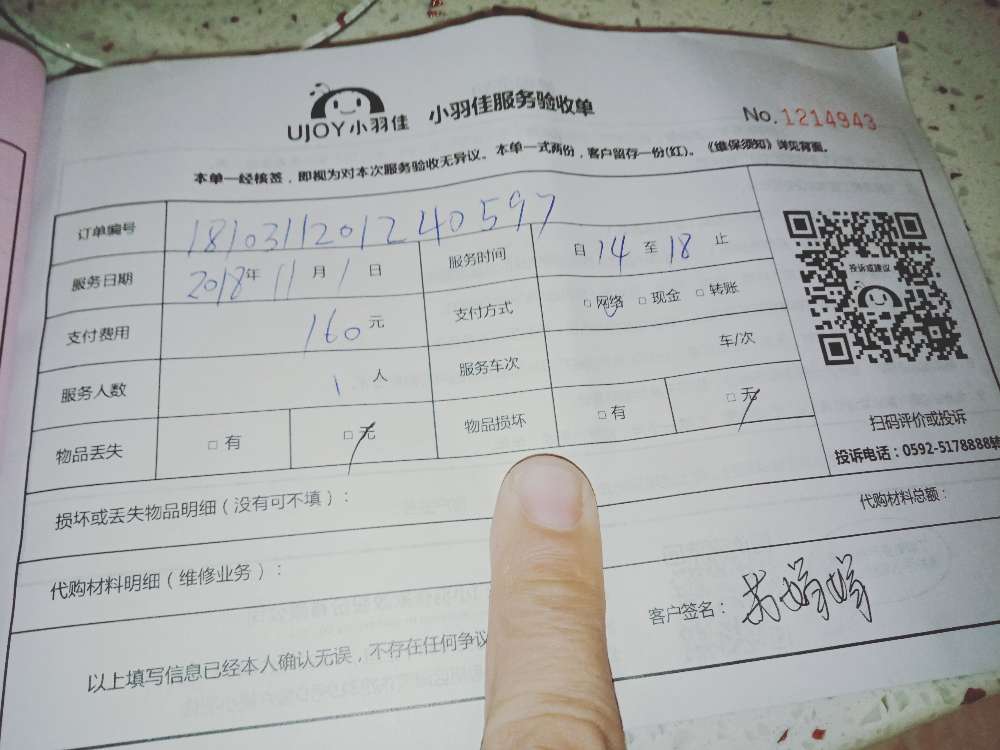 UJOY小羽佳 小羽佳服务验收单 No.1214943
本单一经核签，即视为对本次服务验收无异议。本单一式两份，客户留存一份(红)。《维保须知》详见背面。
订单编号 181031120124 0597
服务日期 2018年 11月 1日 服务时间 自 14 至 18 止
支付费用 160元 支付方式 □ 网络 □ 现金 □ 转账
服务人数 1 人 服务车次 车/次
物品丢失 □ 有 □ 无 物品损坏 □ 有 □ 无
投诉或建议
扫码评价或投诉
投诉电话：0592-5178888转
损坏或丢失物品明细（没有可不填）：
代购材料明细（维修业务）： 代购材料总额：
以上填写信息已经本人确认无误，不存在任何争议
客户签名：